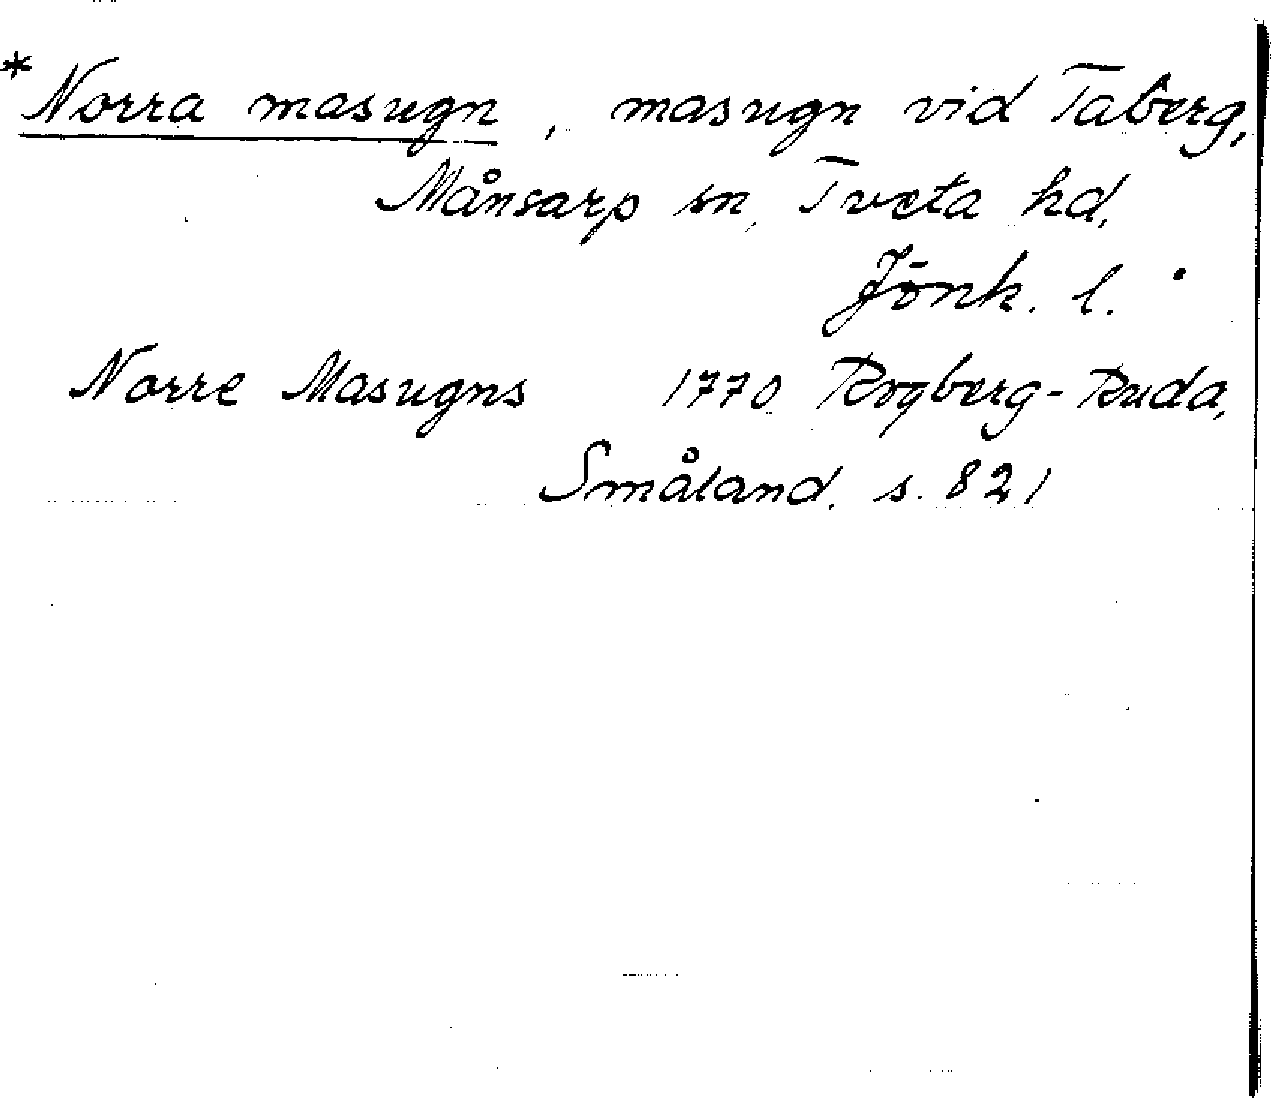 *Norra masugn, masugn vid Taberg,
Månsarp sn, Tveta hd,
Jönk. l.
Norre Masugns 1770 Rogberg-Ruda,
Småland, s. 821